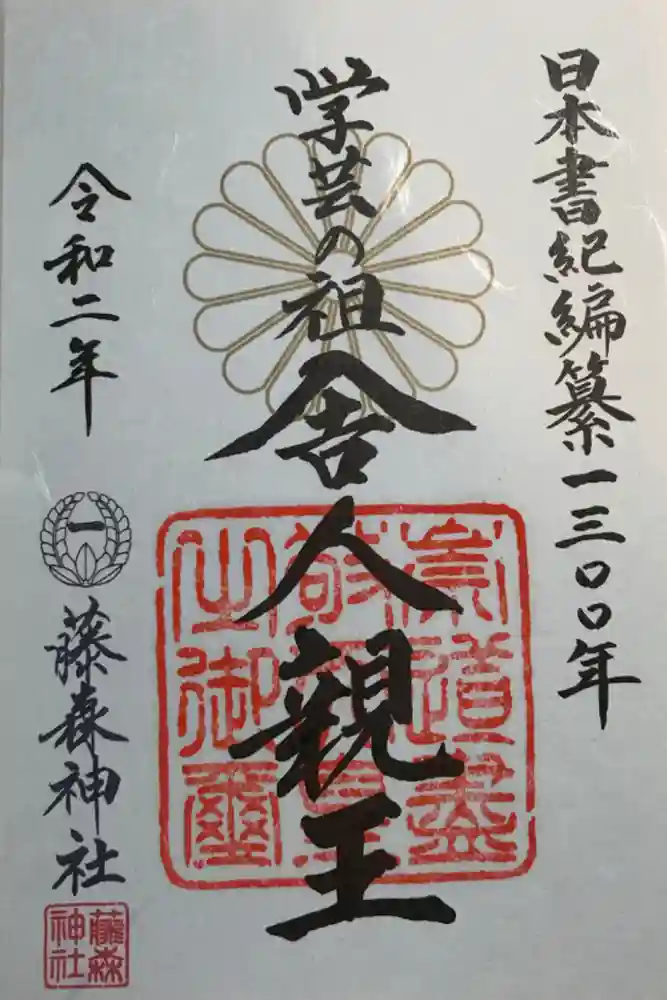 日本書紀編纂一三〇〇年
学芸の祖
舎人親王
令和二年
一
藤森神社
崇道盡
敬
之御璽
藤森
神社